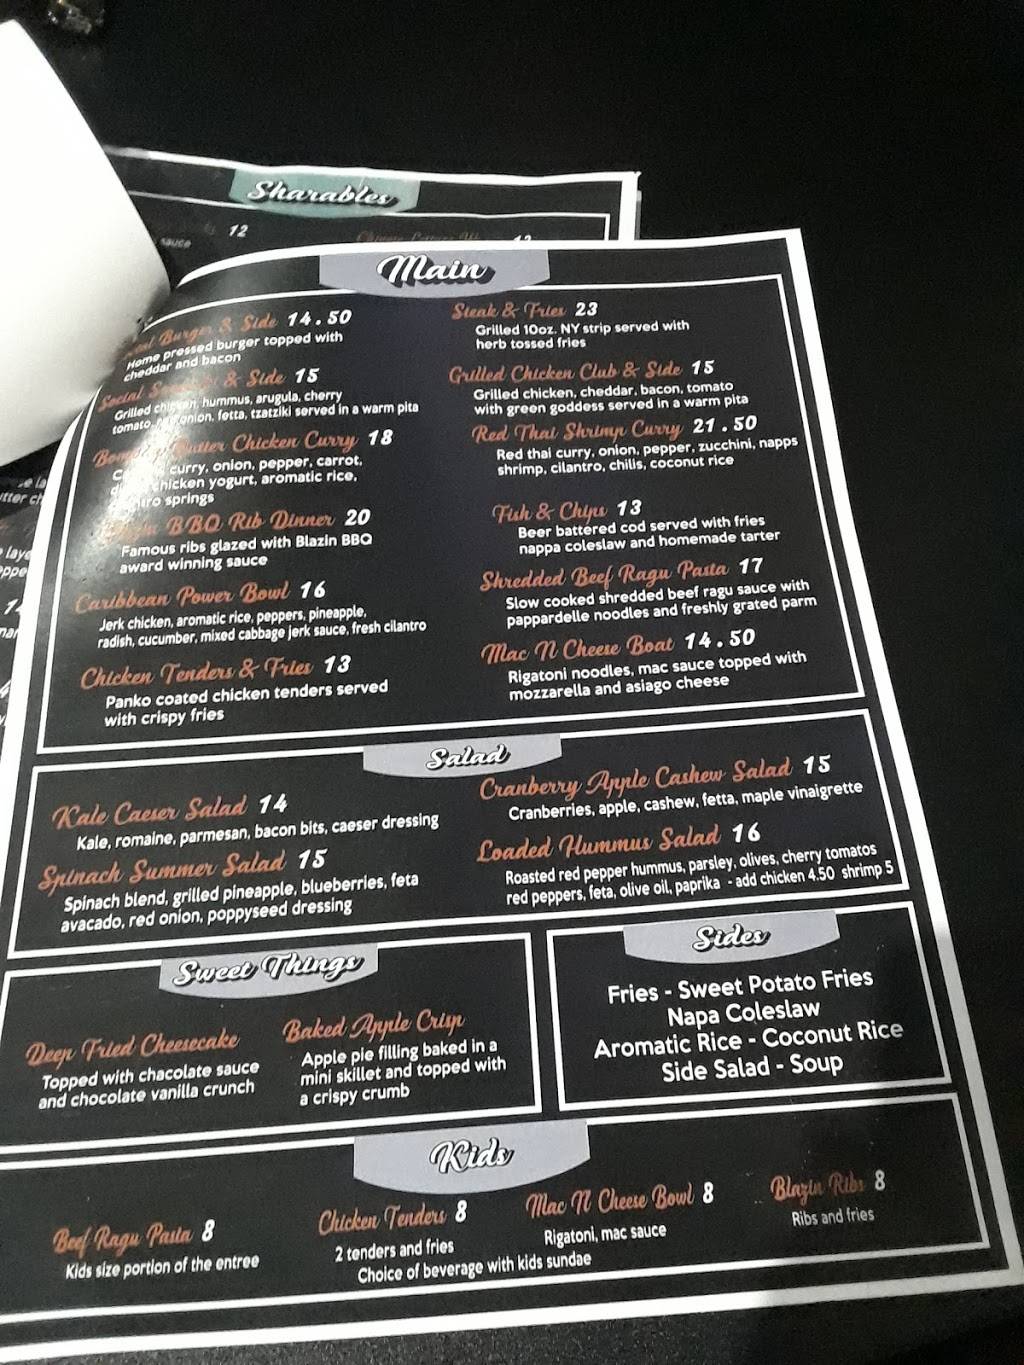 Sharables
12
sauce
Main
Burger & Side 14.50
Home pressed burger topped with
cheddar and bacon
Social & Side 15
Grilled chicken, hummus, arugula, cherry
tomato, onion, fetta, tzatziki served in a warm pita
Butter Chicken Curry 18
curry, onion, pepper, carrot,
chicken yogurt, aromatic rice,
springs
BBQ Rib Dinner 20
Famous ribs glazed with Blazin BBQ
award winning sauce
Caribbean Power Bowl 16
Jerk chicken, aromatic rice, peppers, pineapple,
radish, cucumber, mixed cabbage jerk sauce, fresh cilantro
Chicken Tenders & Fries 13
Panko coated chicken tenders served
with crispy fries
Steak & Fries 23
Grilled 10oz. NY strip served with
herb tossed fries
Grilled Chicken Club & Side 15
Grilled chicken, cheddar, bacon, tomato
with green goddess served in a warm pita
Red Thai Shrimp Curry 21.50
Red thai curry, onion, pepper, zucchini, napps
shrimp, cilantro, chilis, coconut rice
Fish & Chips 13
Beer battered cod served with fries
nappa coleslaw and homemade tarter
Shredded Beef Ragu Pasta 17
Slow cooked shredded beef ragu sauce with
pappardelle noodles and freshly grated parm
Mac N Cheese Boat 14.50
Rigatoni noodles, mac sauce topped with
mozzarella and asiago cheese
Salad
Kale Caeser Salad 14
Kale, romaine, parmesan, bacon bits, caeser dressing
Spinach Summer Salad 15
Spinach blend, grilled pineapple, blueberries, feta
avacado, red onion, poppyseed dressing
Cranberry Apple Cashew Salad 15
Cranberries, apple, cashew, fetta, maple vinaigrette
Loaded Hummus Salad 16
Roasted red pepper hummus, parsley, olives, cherry tomatos
red peppers, feta, olive oil, paprika - add chicken 4.50 shrimp 5
Sweet Things
Deep Fried Cheesecake
Topped with chacolate sauce
and chocolate vanilla crunch
Baked Apple Crisp
Apple pie filling baked in a
mini skillet and topped with
a crispy crumb
Sides
Fries - Sweet Potato Fries
Napa Coleslaw
Aromatic Rice - Coconut Rice
Side Salad - Soup
Kids
Beef Ragu Pasta 8
Kids size portion of the entree
Chicken Tenders 8
2 tenders and fries
Mac N Cheese Bowl 8
Rigatoni, mac sauce
Blazin Ribs 8
Ribs and fries
Choice of beverage with kids sundae